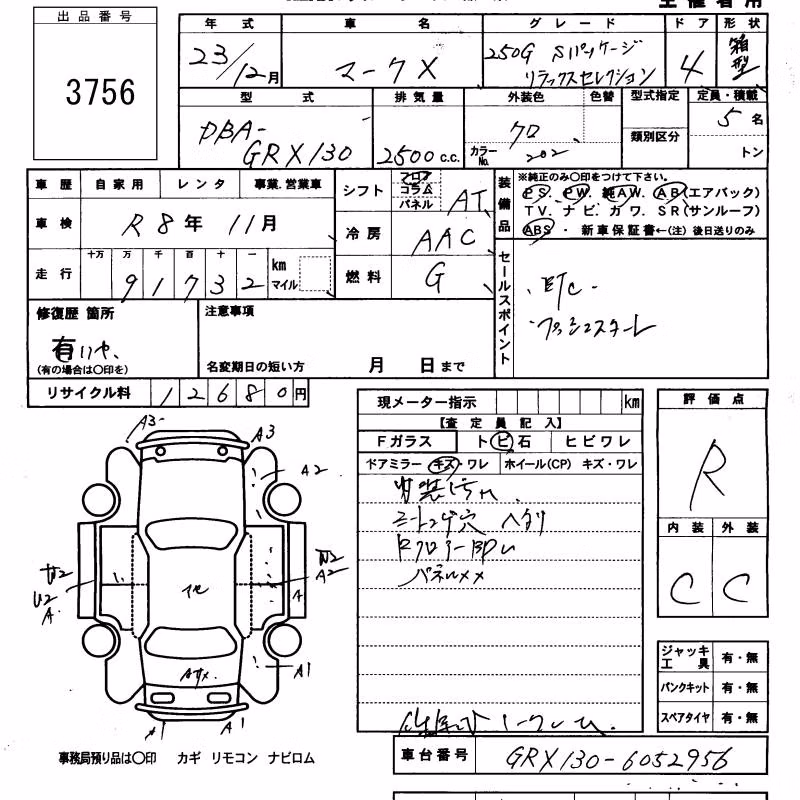 出品番号
3756
主催者用
年式 車名 グレード ドア 形状
23/12月 マークX 250G Sパッケージ 4 箱型
リラックスセレクション
型式 排気量 外装色 色替 型式指定 定員・積載
DBA- クロ 5名
GRX130 2500c.c. カラーNo. 202 類別区分 トン
車歴 自家用 レンタ 事業.営業車
シフト フロア コラム パネル AT
車検 R8年 11月
冷房 AAC
走行 十万 万 千 百 十 一 km マイル
91732
燃料 G
装備品
※純正のみ○印をつけて下さい。
PS. PW. 純AW. AB(エアバック)
TV. ナビ. カワ. SR(サンルーフ)
ABS ・ 新車保証書←(注) 後日送りのみ
セールスポイント
・ETC-
・プッシュスタート
修復歴 箇所
有
(有の場合は○印を)
注意事項
名変期日の短い方 月 日まで
リサイクル料 12680円
現メーター指示 km
【査定員記入】
Fガラス トビ石 ヒビワレ
ドアミラー キズ・ワレ ホイール(CP) キズ・ワレ
内装
シートコゲ穴 ヘタリ
パネルメメ
評価点
R
内装 外装
C C
ジャッキ工具 有・無
パンクキット 有・無
スペアタイヤ 有・無
A3 A3
A2
W2 W2
U2 A2
A. A
A1
A1 A1
事務局預り品は○印 カギ リモコン ナビロム
車台番号 GRX130-6052956